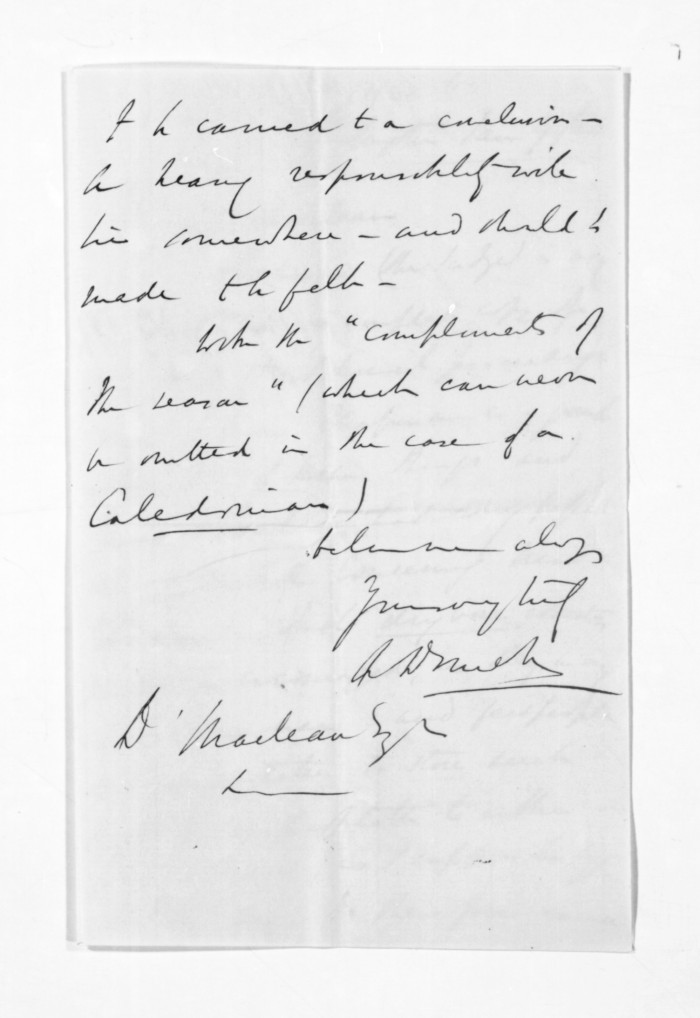 to be carried to a conclusion –
a heavy responsibility will
lie somewhere – and should be
made to be felt –
With the "compliments of
the season" (which can never
be omitted in the case of a
Caledonian)
believe me always
Yours very truly
D. Maclean Esqr